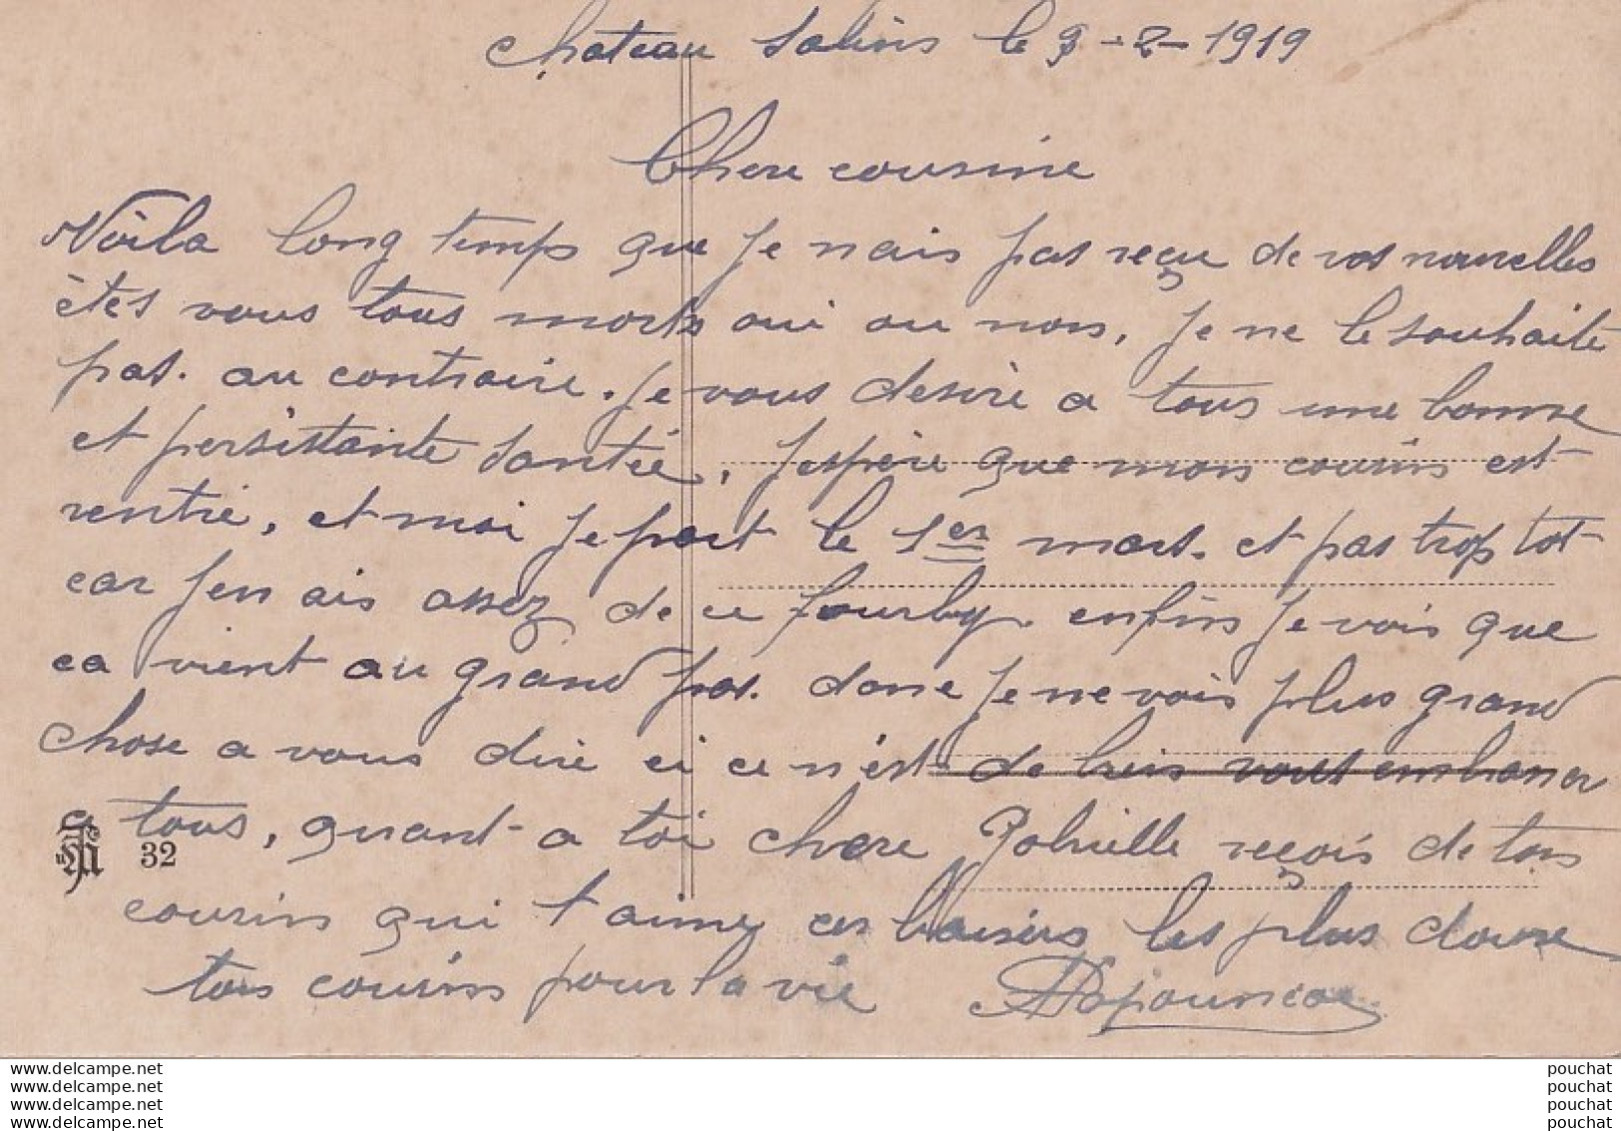 Chateau Salins le 9-2-1919
Chere cousine
Voila long temps que je nais pas reçu de vos nouvelles
êtes vous tous morts oui ou non, je ne le souhaite
pas. au contraire. je vous desire a tous une bonne
et persistante santée, jespère que mon cousin est
rentré, et moi je part le 1er mars. et pas trop tot
car jen ais assez de ce fourby. enfin je vois que
ca vient au grand pas. donc je ne vois plus grand
chose a vous dire ci ce n'est de bien vous embrasser
tous, quant a toi chere Gabrielle reçois de ton
cousin qui t'aime ces baisers les plus doux
ton cousin pour la vie
32
www.delcampe.net
www.delcampe.net
www.delcampe.net
www.delcampe.net
pouchat
pouchat
pouchat
pouchat